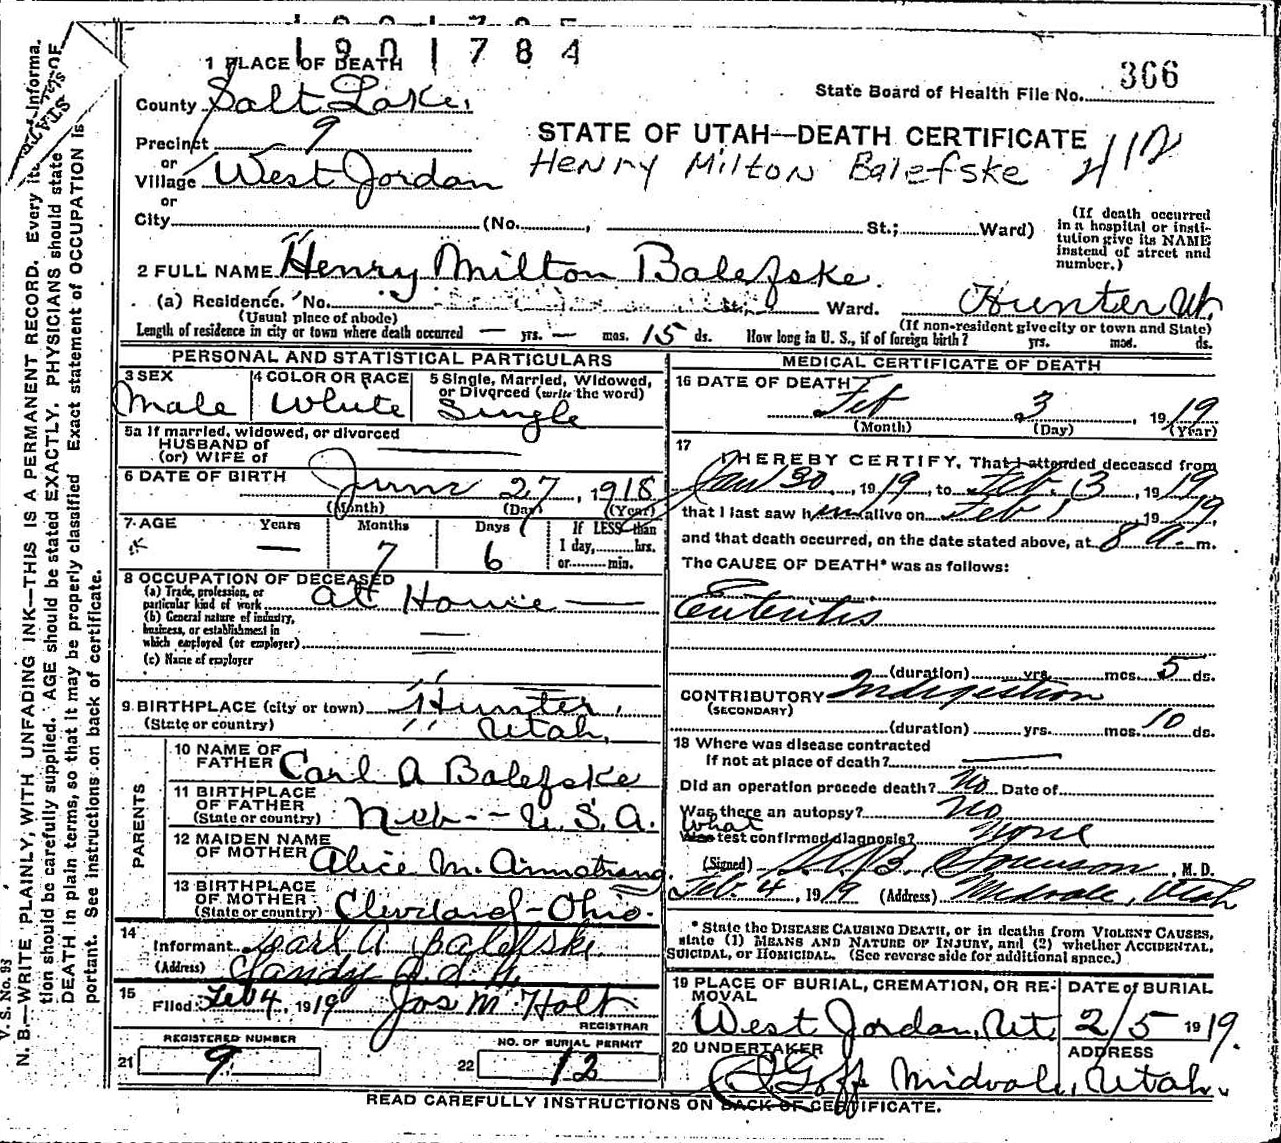 1901784
1 PLACE OF DEATH
366
State Board of Health File No.
County Salt Lake.
STATE OF UTAH—DEATH CERTIFICATE
Precinct 9
Henry Milton Balefske 
or
Village West Jordan
or
City (No. , St.; Ward)
(If death occurred
in a hospital or insti-
tution give its NAME
instead of street and
number.)
2 FULL NAME Henry Milton Balefske.
(a) Residence. No. St., Ward. Hunter Ut.
(Usual place of abode)
(If non-resident give city or town and State)
Length of residence in city or town where death occurred — yrs. — mos. 15 ds. How long in U. S., if of foreign birth? yrs. mos. ds.
PERSONAL AND STATISTICAL PARTICULARS
3 SEX
Male
4 COLOR OR RACE
White
5 Single, Married, Widowed,
or Divorced (write the word)
Single
5a If married, widowed, or divorced
HUSBAND of
(or) WIFE of
6 DATE OF BIRTH June 27, 1918
(Month) (Day) (Year)
7 AGE Years Months Days If LESS than
— 7 6 1 day, hrs.
or min.
8 OCCUPATION OF DECEASED
(a) Trade, profession, or
particular kind of work at Home —
(b) General nature of industry,
business, or establishment in
which employed (or employer) —
(c) Name of employer —
9 BIRTHPLACE (city or town) Hunter,
(State or country) Utah,
PARENTS
10 NAME OF
FATHER Carl A Balefske
11 BIRTHPLACE
OF FATHER
(State or country) Neb-- U.S.A.
12 MAIDEN NAME
OF MOTHER Alice M. Armstrong.
13 BIRTHPLACE
OF MOTHER
(State or country) Cleveland-Ohio.
14
Informant Carl A Balefske
(Address) Sandy
15
Filed Feb 4, 1919 Jos M Holt
REGISTRAR
REGISTERED NUMBER
21 9
NO. OF BURIAL PERMIT
22 12
MEDICAL CERTIFICATE OF DEATH
16 DATE OF DEATH
Feb 3 1919
(Month) (Day) (Year)
17
I HEREBY CERTIFY, That I attended deceased from
Jan 30, 1919, to Feb. 3, 1919
that I last saw him alive on Feb 1, 1919,
and that death occurred, on the date stated above, at 8 a. m.
The CAUSE OF DEATH* was as follows:
Enteritis
(duration) yrs. mos. 5 ds.
CONTRIBUTORY Indigestion
(SECONDARY)
(duration) yrs. mos. 10 ds.
18 Where was disease contracted
If not at place of death? —
Did an operation precede death? No Date of
Was there an autopsy? No
What
Was test confirmed diagnosis? None
(Signed) Sorenson, M. D.
Feb. 4, 1919 (Address) Midvale, Utah
* State the DISEASE CAUSING DEATH, or in deaths from VIOLENT CAUSES,
state (1) MEANS AND NATURE OF INJURY, and (2) whether ACCIDENTAL,
SUICIDAL, or HOMICIDAL. (See reverse side for additional space.)
19 PLACE OF BURIAL, CREMATION, OR RE-
MOVAL
West Jordan, Ut
DATE of BURIAL
2/5 1919.
20 UNDERTAKER
Goff
ADDRESS
Midvale, Utah.
READ CAREFULLY INSTRUCTIONS ON BACK OF CERTIFICATE.
V. S. No. 93
N. B.—WRITE PLAINLY, WITH UNFADING INK—THIS IS A PERMANENT RECORD. Every item of informa-
tion should be carefully supplied. AGE should be stated EXACTLY. PHYSICIANS should state
DEATH in plain terms, so that it may be properly classified Exact statement of OCCUPATION is
portant. See instructions on back of certificate.